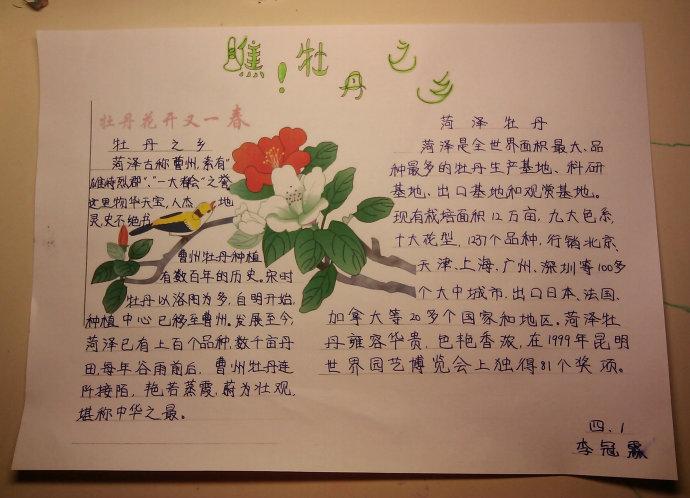 瞧！牡丹之乡
牡丹花开又一春
牡丹之乡
菏泽古称曹州，素有“
雄峙烈郡”、“一大都会”之誉
这里物华天宝，人杰地
灵，史不绝书
曹州牡丹种植
有数百年的历史。宋时
牡丹以洛阳为多，自明开始，
种植中心已移至曹州。发展至今，
菏泽已有上百个品种，数千亩丹
田，每年谷雨前后，曹州牡丹连
阡接陌，艳若蒸霞，蔚为壮观，
堪称中华之最。
菏泽牡丹
菏泽是全世界面积最大、品
种最多的牡丹生产基地、科研
基地、出口基地和观赏基地。
现有栽培面积12万亩，九大色系，
十大花型，1237个品种，行销北京、
天津、上海、广州、深圳等100多
个大中城市，出口日本、法国、
加拿大等20多个国家和地区。菏泽牡
丹雍容华贵，色艳香浓，在1999年昆明
世界园艺博览会上独得81个奖项。
四.1
李冠